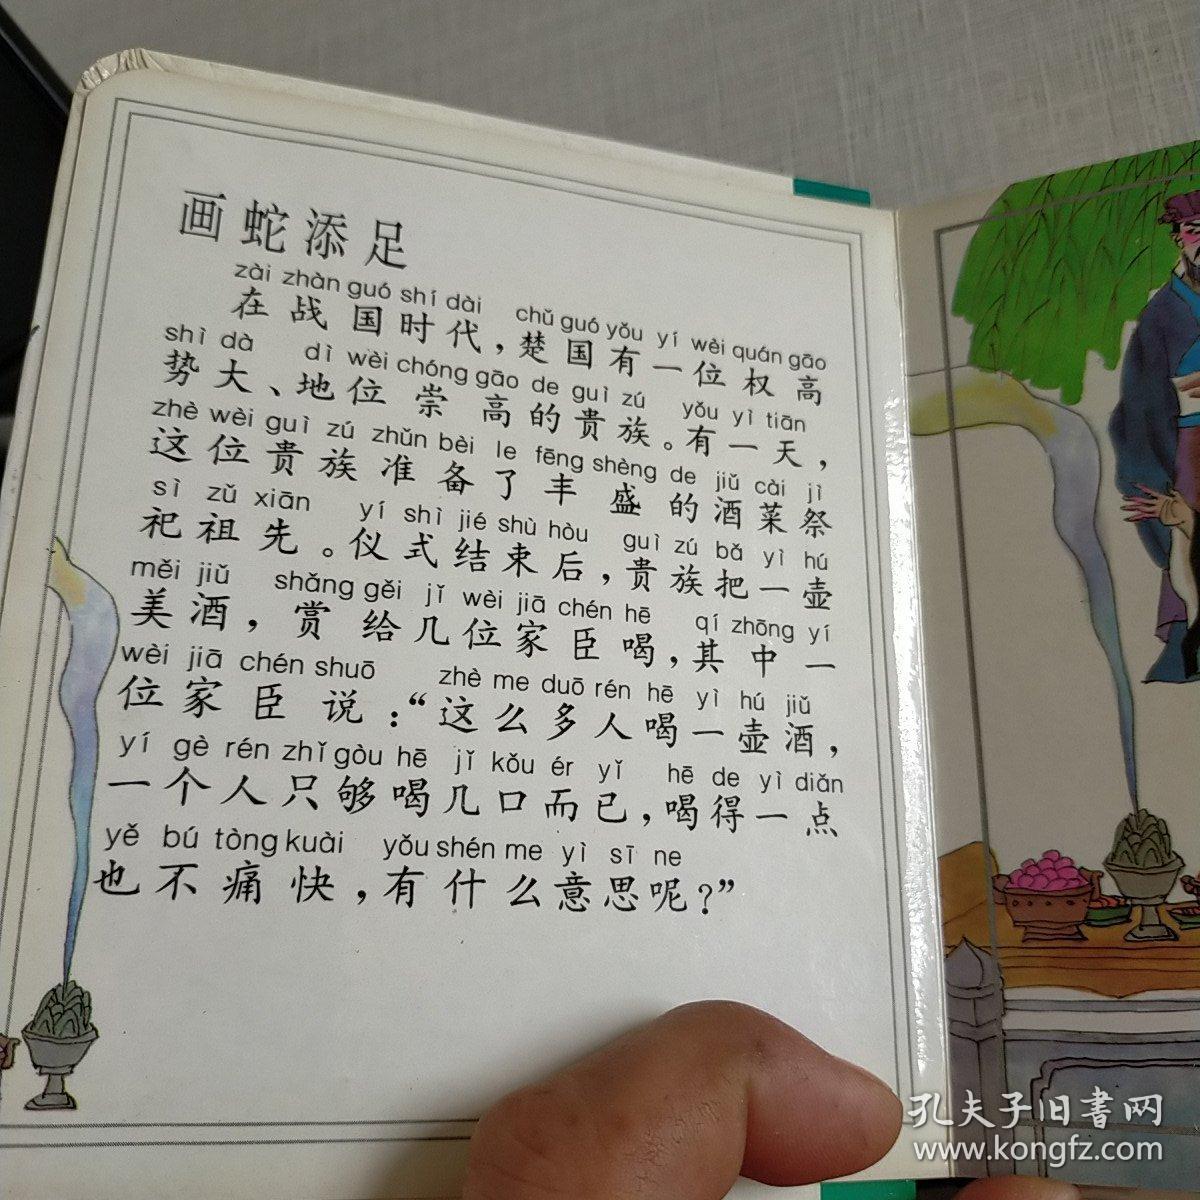 画蛇添足
zài zhàn guó shí dài chǔ guó yǒu yí wèi quán gāo
在战国时代，楚国有一位权高
shì dà dì wèi chóng gāo de guì zú yǒu yì tiān
势大、地位崇高的贵族。有一天，
zhè wèi guì zú zhǔn bèi le fēng shèng de jiǔ cài jì
这位贵族准备了丰盛的酒菜祭
sì zǔ xiān yí shì jié shù hòu guì zú bǎ yì hú
祀祖先。仪式结束后，贵族把一壶
měi jiǔ shǎng gěi jǐ wèi jiā chén hē qí zhōng yí
美酒，赏给几位家臣喝，其中一
wèi jiā chén shuō zhè me duō rén hē yì hú jiǔ
位家臣说：“这么多人喝一壶酒，
yí gè rén zhǐ gòu hē jǐ kǒu ér yǐ hē de yì diǎn
一个人只够喝几口而已，喝得一点
yě bú tòng kuài yǒu shén me yì sī ne
也不痛快，有什么意思呢？”
孔夫子旧書网
www.kongfz.com